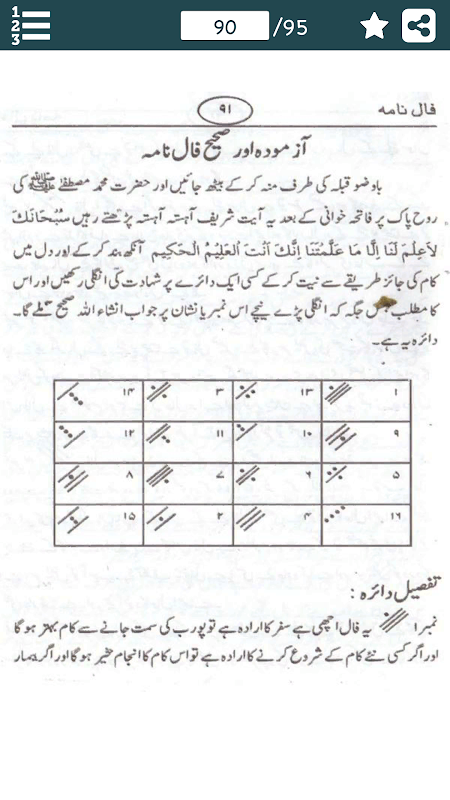 1
2
3
90 /95
فال نامہ
۹۱
آزمودہ اور صحیح فال نامہ
باوضو قبلہ کی طرف منہ کر کے بیٹھ جائیں اور حضرت محمد مصطفےٰ ﷺ کی
روح پاک پر فاتحہ خوانی کے بعد یہ آیت شریف آہستہ آہستہ پڑھتے رہیں سُبْحَانَكَ
لَاعِلْمَ لَنَا اِلَّا مَا عَلَّمْتَنَا اِنَّكَ اَنْتَ الْعَلِيْمُ الْحَكِيْم آنکھ بند کر کے اور دل میں
کام کی جائز طریقے سے نیت کر کے کسی ایک دائرے پر شہادت کی انگلی رکھیں اور اس
کا مطلب جس جگہ کہ انگلی پڑے نیچے اس نمبر یا نشان پر جواب انشاء اللہ صحیح ملے گا۔
دائرہ یہ ہے۔
۱ ۱۳ ۳ ۱۴
۹ ۱۰ ۱۱ ۱۲
۵ ۶ ۷ ۸
۱۶ ۴ ۲ ۱۵
تفصیل دائرہ :
نمبر ۱ یہ فال اچھی ہے سفر کا ارادہ ہے تو پورب کی سمت جانے سے کام بہتر ہوگا
اور اگر کسی نئے کام کے شروع کرنے کا ارادہ ہے تو اس کام کا انجام خیر ہوگا اور اگر بیمار